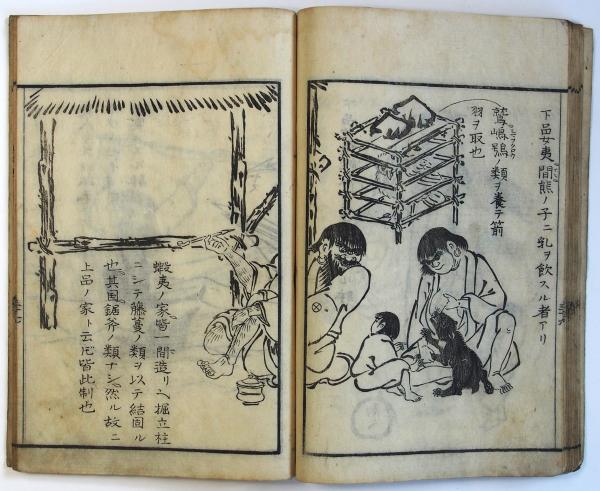 下品女夷間熊ノ子ニ乳ヲ飲スル者アリ
鷲嶋鴞ノ類ヲ養テ箭
羽ヲ取也
蝦夷ノ家皆一間造リ掘立柱
ニシテ藤蔓ノ類ヲ以テ結固ル
也其国鋸斧ノ類ナシ然ル故ニ
上品ノ家ト云𪜈皆此制也